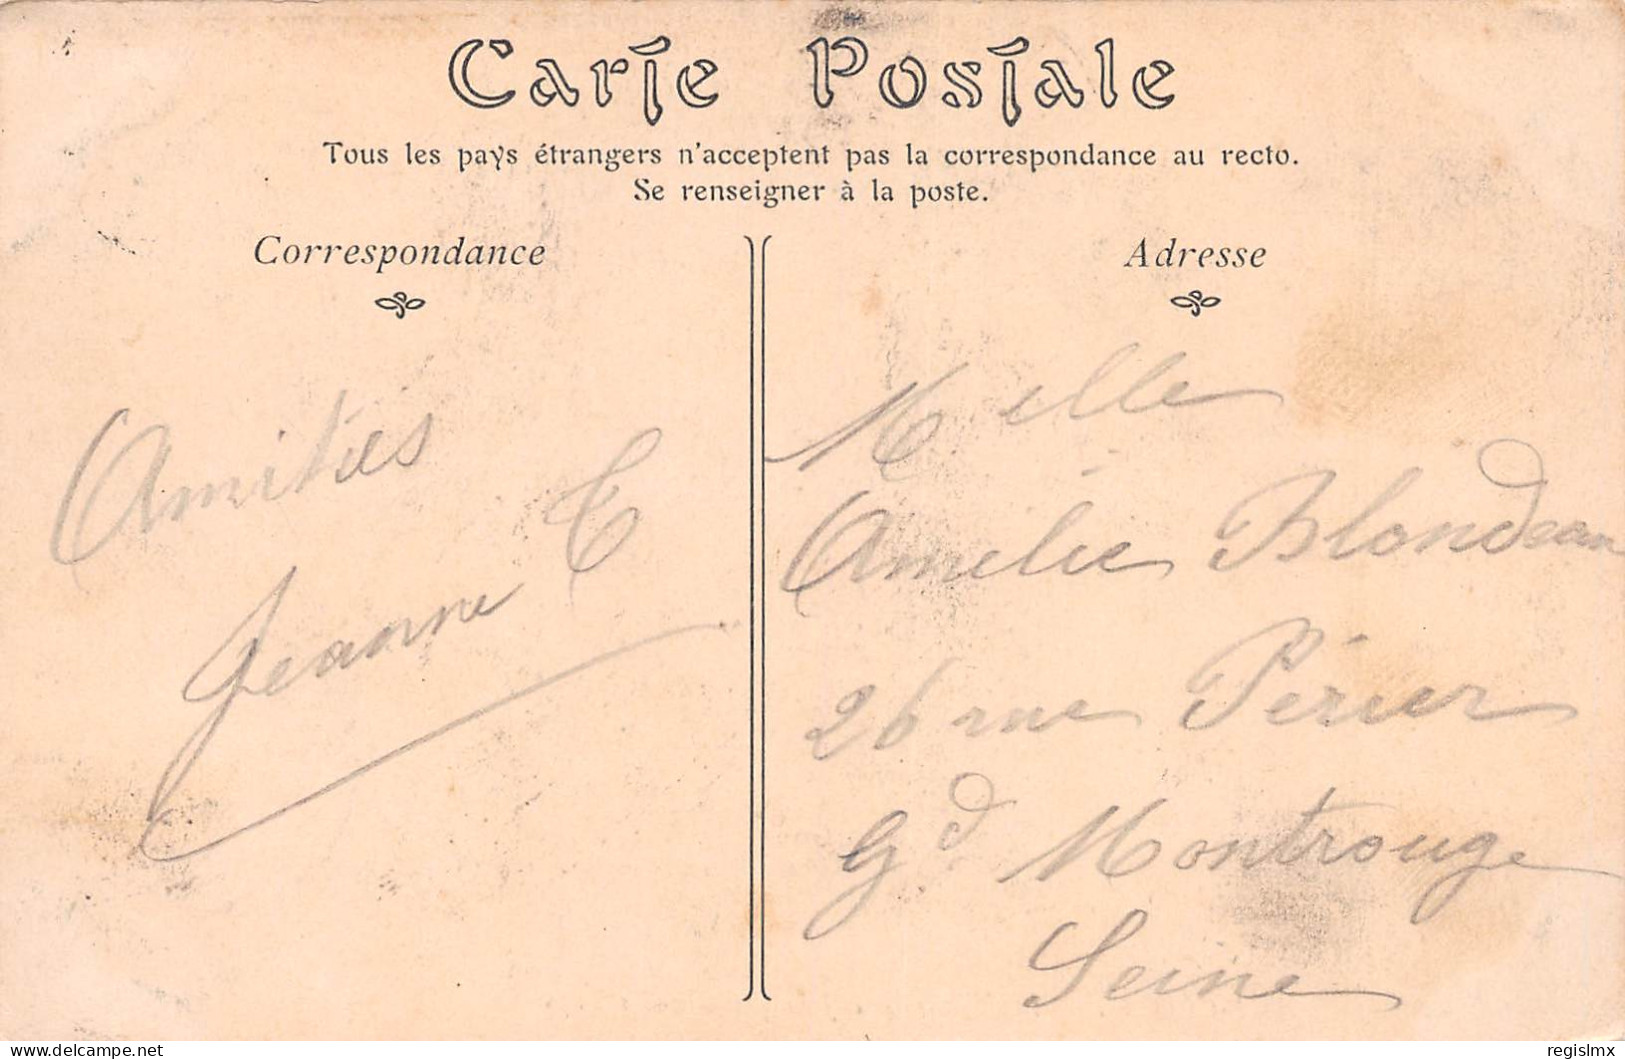 Carte Postale
Tous les pays étrangers n'acceptent pas la correspondance au recto.
Se renseigner à la poste.
Correspondance
Amitiés
Jeanne T
Adresse
Melle
Amelie Blondeau
26 rue Périer
Gd Montrouge
Seine
www.delcampe.net
regislmx